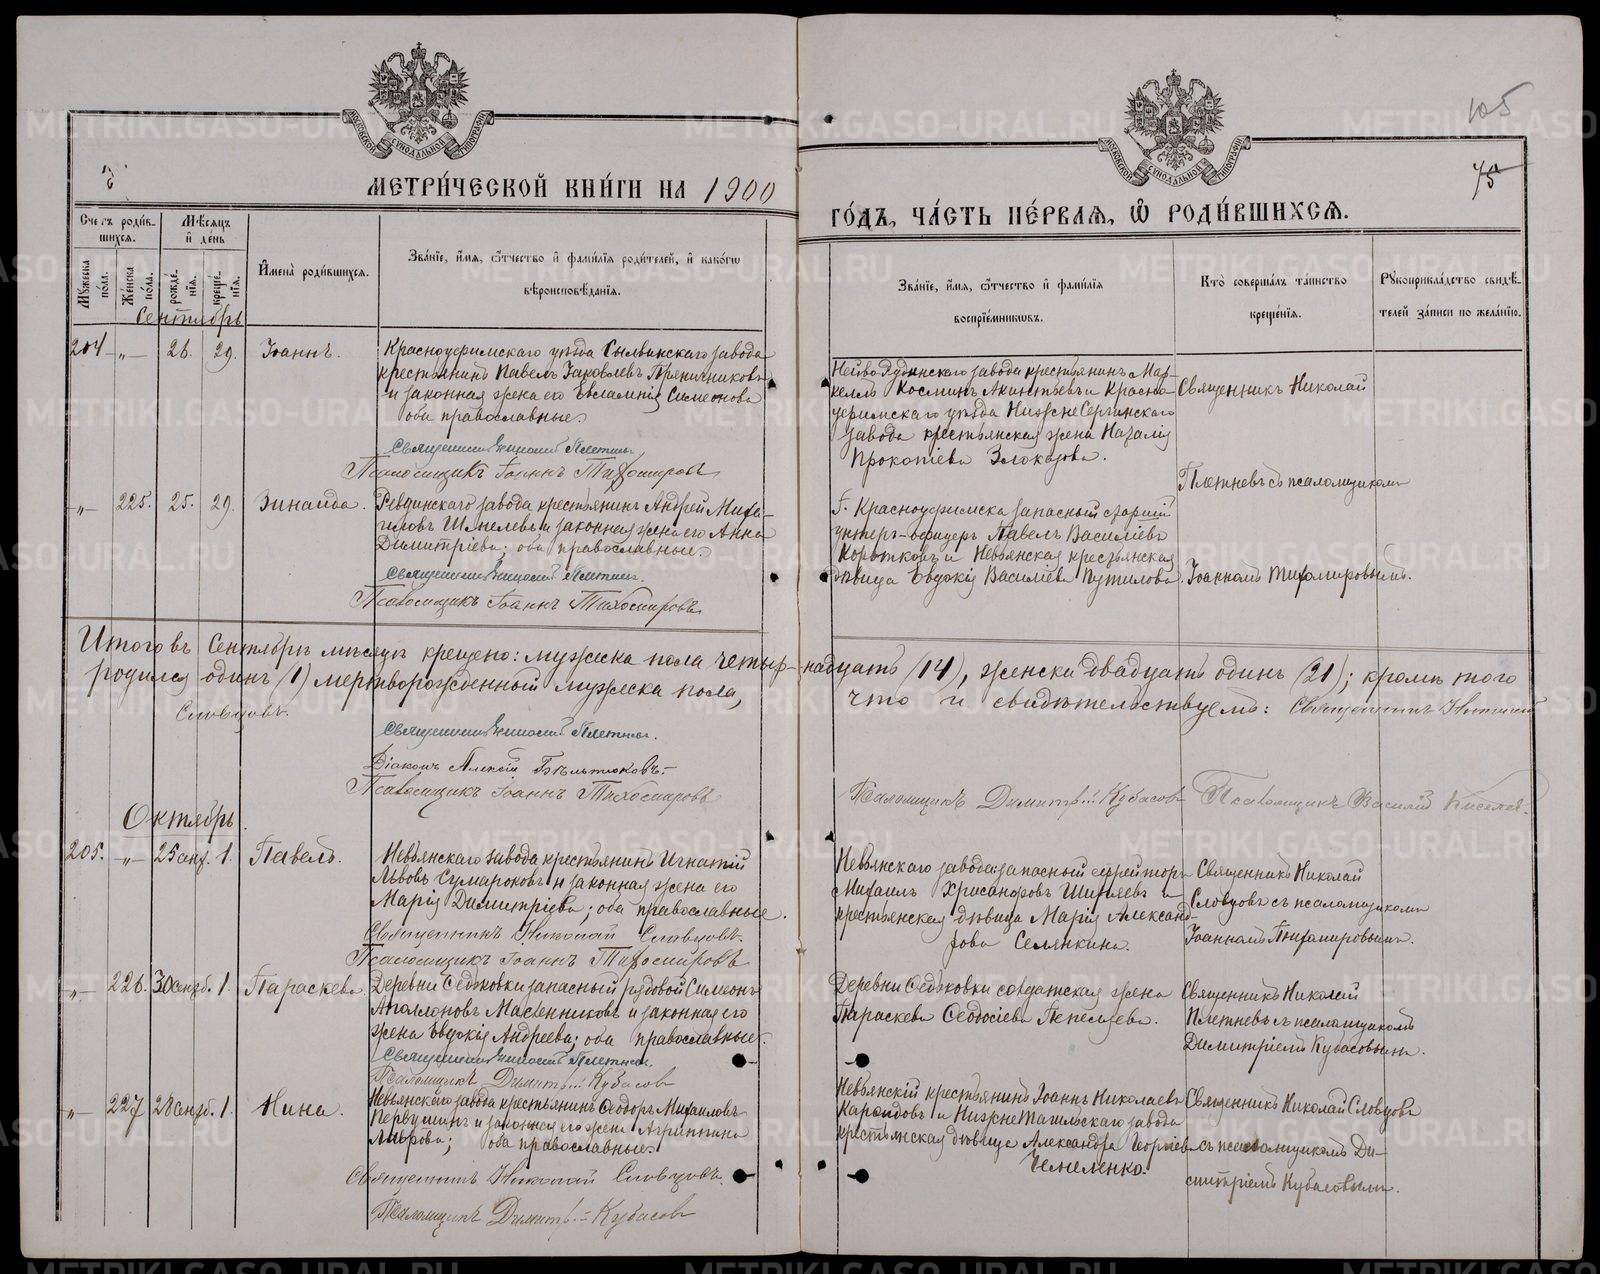 METRIKI.GASO-URAL.RU
105
75
МЕТРИ́ЧЕСКОЙ КНИ́ГИ НА 1900
ГО́ДЪ, ЧА́СТЬ ПЕ́РВАЯ, Ѽ РОДИ́ВШИХСЯ.
Сче́тъ роди́вшихся.
Мѣ́сяцъ и҆ де́нь
Мꙋ́жеска по́ла.
Же́нска по́ла.
рожде́нїѧ.
креще́нїѧ.
И҆мена̀ роди́вшихсѧ.
Зва́нїе, и҆́мѧ, ѻ҆́тчество и҆ фамѝлїѧ роди́телей, и҆ како́гѡ
вѣроисповѣ́данїѧ.
Зва́нїе, и҆́мѧ, ѻ҆́тчество и҆ фами́лїѧ
воспрїе́мникѡвъ.
Кто̀ соверша́лъ та́инство
креще́нїѧ.
Рꙋкоприкла́дство свидѣ́-
телей за́писи по жела́нїю.
Сентябрь
204 -„- 26. 29. Іоаннъ.
Красноуфимскаго уѣзда Сылвинскаго завода
крестьянинъ Павелъ Іаковлевъ Пряничниковъ
и законная жена его Евлампія Симеонова
оба православные.
Священникъ Николай Плетневъ
Псаломщикъ Іоаннъ Тихомировъ
Нейво Рудянскаго завода крестьянинъ Мар-
келлъ Косминъ Акинтьевъ и Красно-
уфимскаго уѣзда Нижне Сергинскаго
завода крестьянская жена Наталія
Прокопіева Злоказова.
Священникъ Николай
Плетневъ съ псаломщикомъ
Іоанномъ Тихомировымъ.
-„- 225. 25. 29. Зинаида.
Ревдинскаго завода крестьянинъ Андрей
Шмелевъ и законная жена его Анна
Димитріева; оба православные.
Священникъ Николай Плетневъ.
Псаломщикъ Іоаннъ Тихомировъ
Г. Красноуфимска запасный старшій
унтеръ-офицеръ Павелъ Василіевъ
Коротковъ и Невьянская крестьянская
дѣвица Евдокія Василіева Путилова.
Итого въ Сентябрѣ мѣсяцѣ крещено: мужеска пола четыр-надцать (14), женска двадцать одинъ (21); кромѣ того
родился одинъ (1) мертворожденный мужеска пола, что и свидѣтельствуемъ: Священникъ Николай
Словцовъ.
Священникъ Николай Плетневъ.
Діаконъ Алексій Бѣльтюковъ.
Псаломщикъ Іоаннъ Тихомировъ
Псаломщикъ Димитрій Кубасовъ
Псаломщикъ Василій Киселевъ.
Октябрь.
205. -„- 25 сент. 1. Павелъ.
Невьянскаго завода крестьянинъ Игнатій
Львовъ Сумароковъ и законная жена его
Марія Димитріева; оба православные.
Священникъ Николай Словцовъ.
Псаломщикъ Іоаннъ Тихомировъ
Невьянскаго завода запасный ефрейторъ
Михаилъ Хрисанфовъ Шмелевъ и
крестьянская дѣвица Марія Александ-
рова Селянкина.
Священникъ Николай
Словцовъ съ псаломщикомъ
Іоанномъ Тихомировымъ.
-„- 226. 30 сент. 1. Параскева
Деревни Ѳедьковки запасный рядовой Симеонъ
Аполлоновъ Масленниковъ и законная его
жена Евдокія Андреева; оба православные.
Священникъ Николай Плетневъ.
Псаломщикъ Димитрій Кубасовъ
Деревни Ѳедьковки солдатская жена
Параскева Ѳеодосіева Пепеляева.
Священникъ Николай
Плетневъ съ псаломщикомъ
Димитріемъ Кубасовымъ.
-„- 227 28 сент. 1. Нина.
Невьянскаго завода крестьянинъ Ѳеодоръ Михайловъ
Первушинъ и законная его жена Агриппина
Лаврова; оба православные.
Священникъ Николай Словцовъ.
Псаломщикъ Димитрій Кубасовъ
Невьянскій крестьянинъ Іоаннъ Николаевъ
и Нижне Тагильскаго завода
крестьянская дѣвица Александра Георгіева
Священникъ Николай Словцовъ
съ псаломщикомъ Ди-
митріемъ Кубасовымъ.